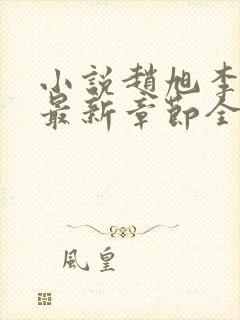 小説趙旭李
最新章節全
風皇